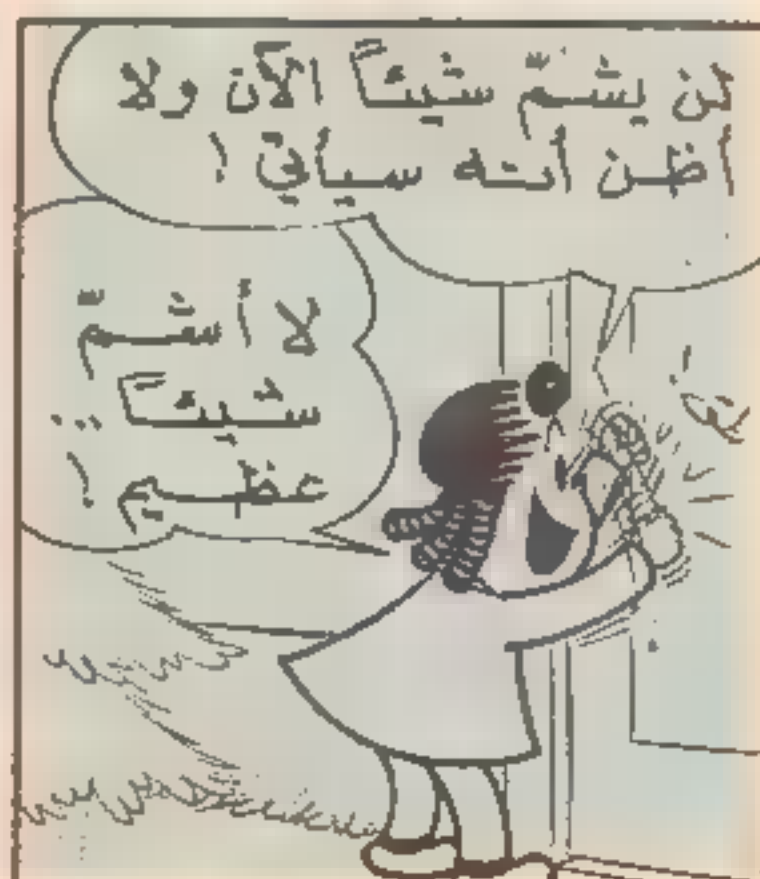 لن يشمّ شيئاً الآن ولا
أظن أنه سيأتي !
لا أشمّ
شيئاً ..
عظيم !